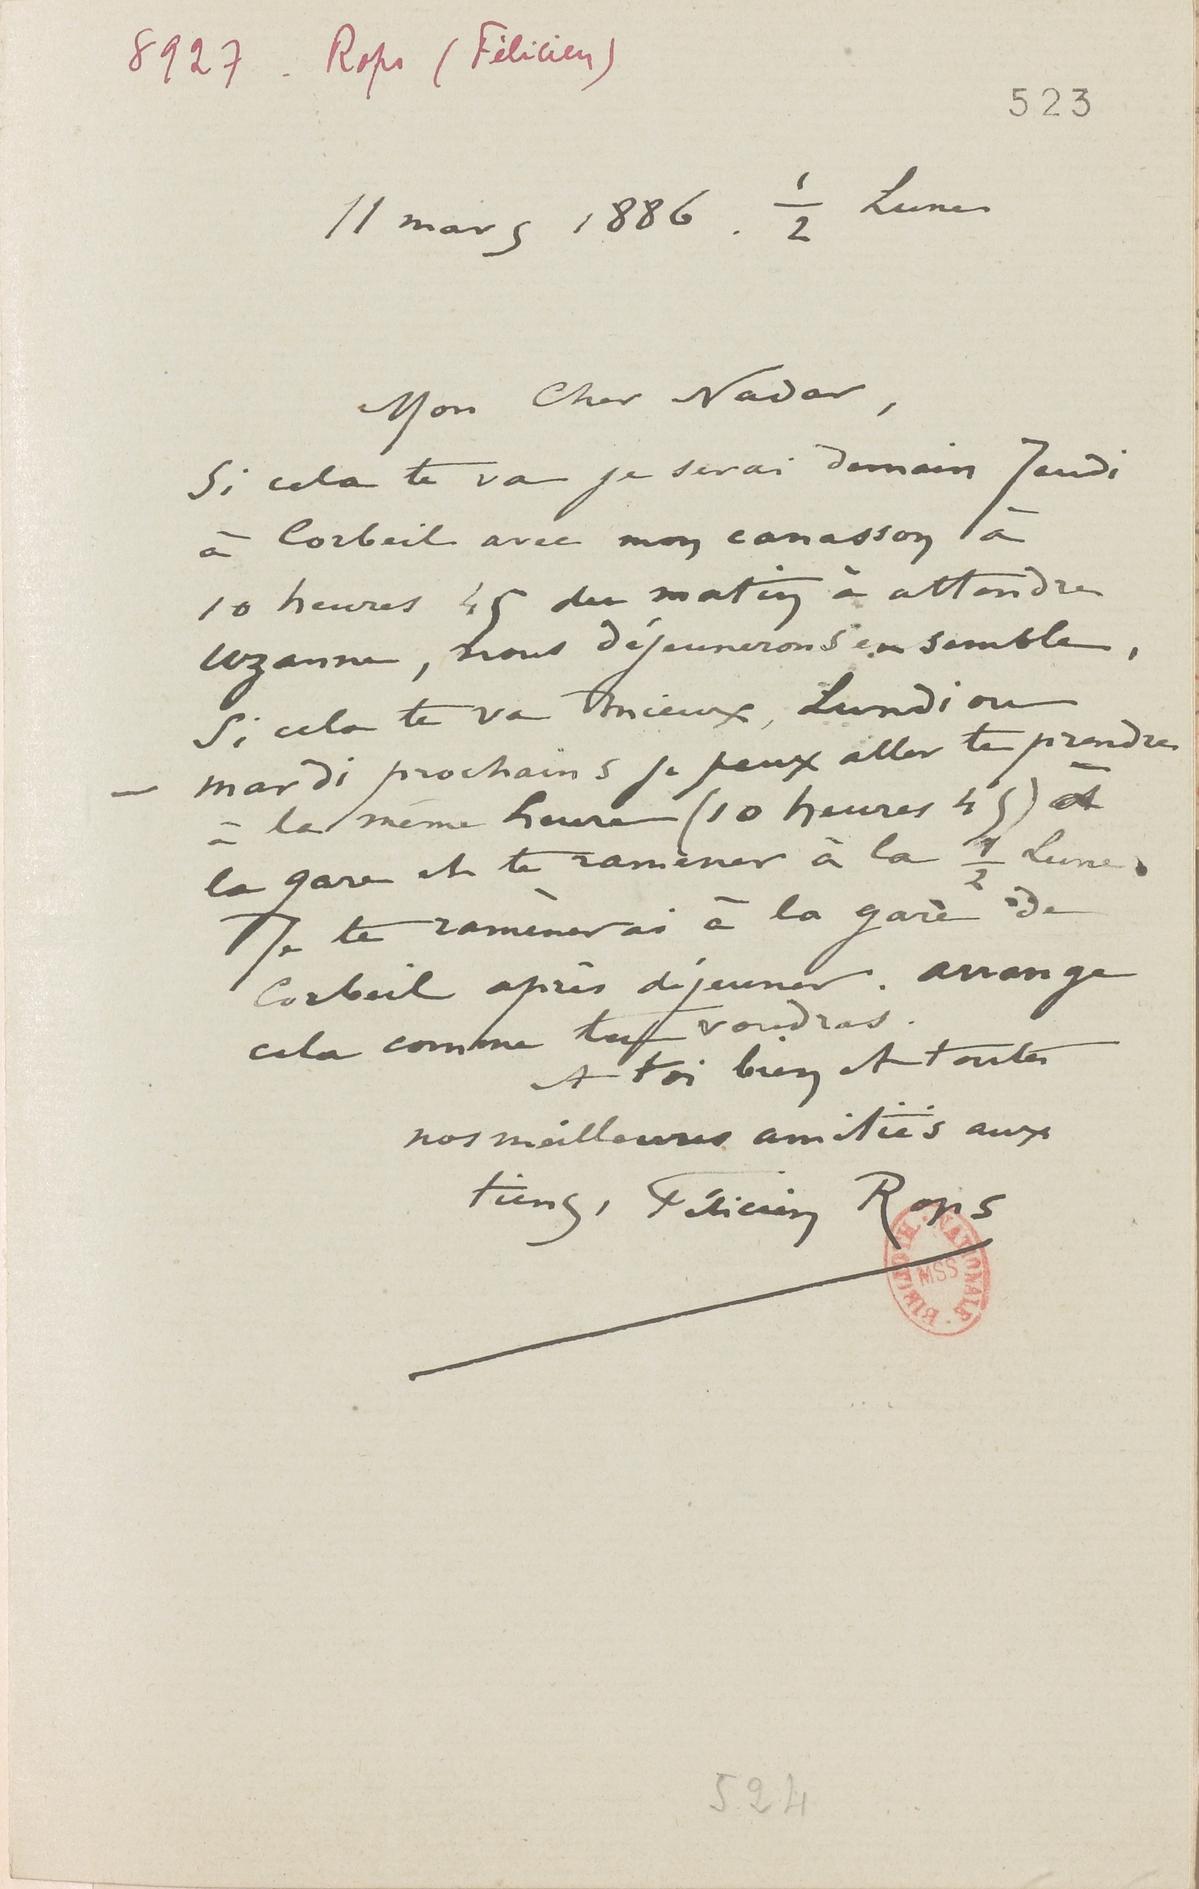 8927 . Rops (Félicien)
523
11 mars 1886 . 1/2 Lune
Mon Cher Nadar,
Si cela te va je serai demain Jeudi
à Corbeil avec mon canasson à
10 heures 45 du matin à attendre
Uzanne, nous déjeunerons ensemble,
Si cela te va mieux, Lundi ou
– mardi prochains je peux aller te prendre
à la même heure (10 heures 45) à
la gare et te ramener à la 1/2 Lune.
Je te ramènerai à la gare de
Corbeil après déjeuner. arrange
cela comme tu voudras.
A toi bien et toutes
nos meilleures amitiés aux
tiens, Félicien Rops
BIBLIOTH. NATIONALE MSS
524